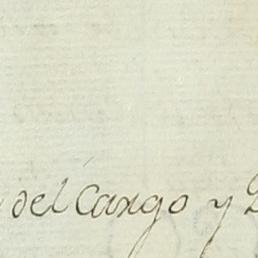 del Cargo y